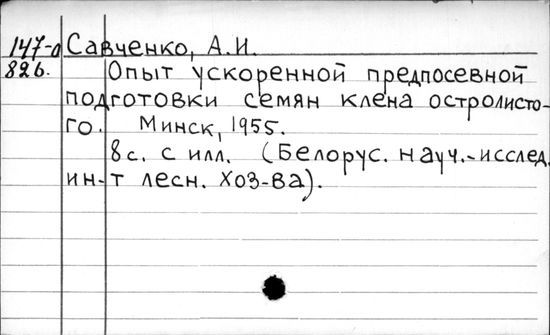 147-а Савченко, А.И.
826. Опыт ускоренной предпосевной
подготовки семян клена остролисто-
го. Минск, 1955.
8с. с илл. (Белорус. науч.-исслед.
ин-т лесн. хоз-ва).